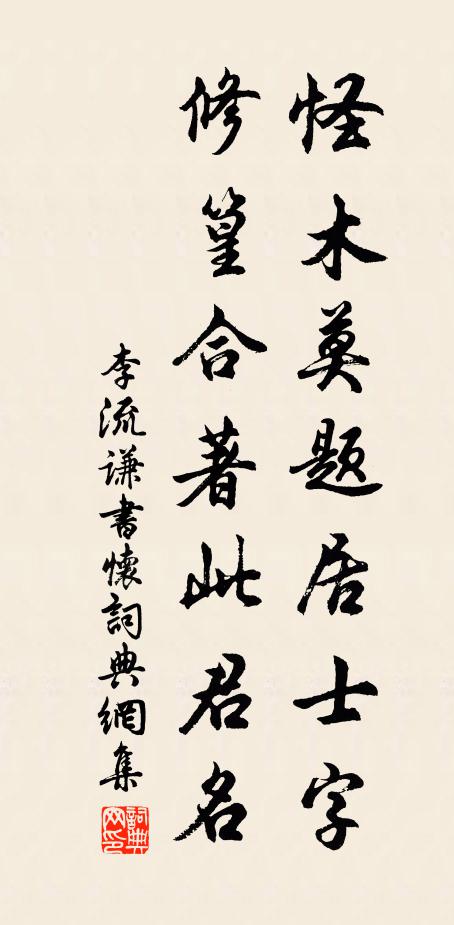 怪木莫題居士字
修篁合著此君名
李流谦書懷詞典網集
詞典網印